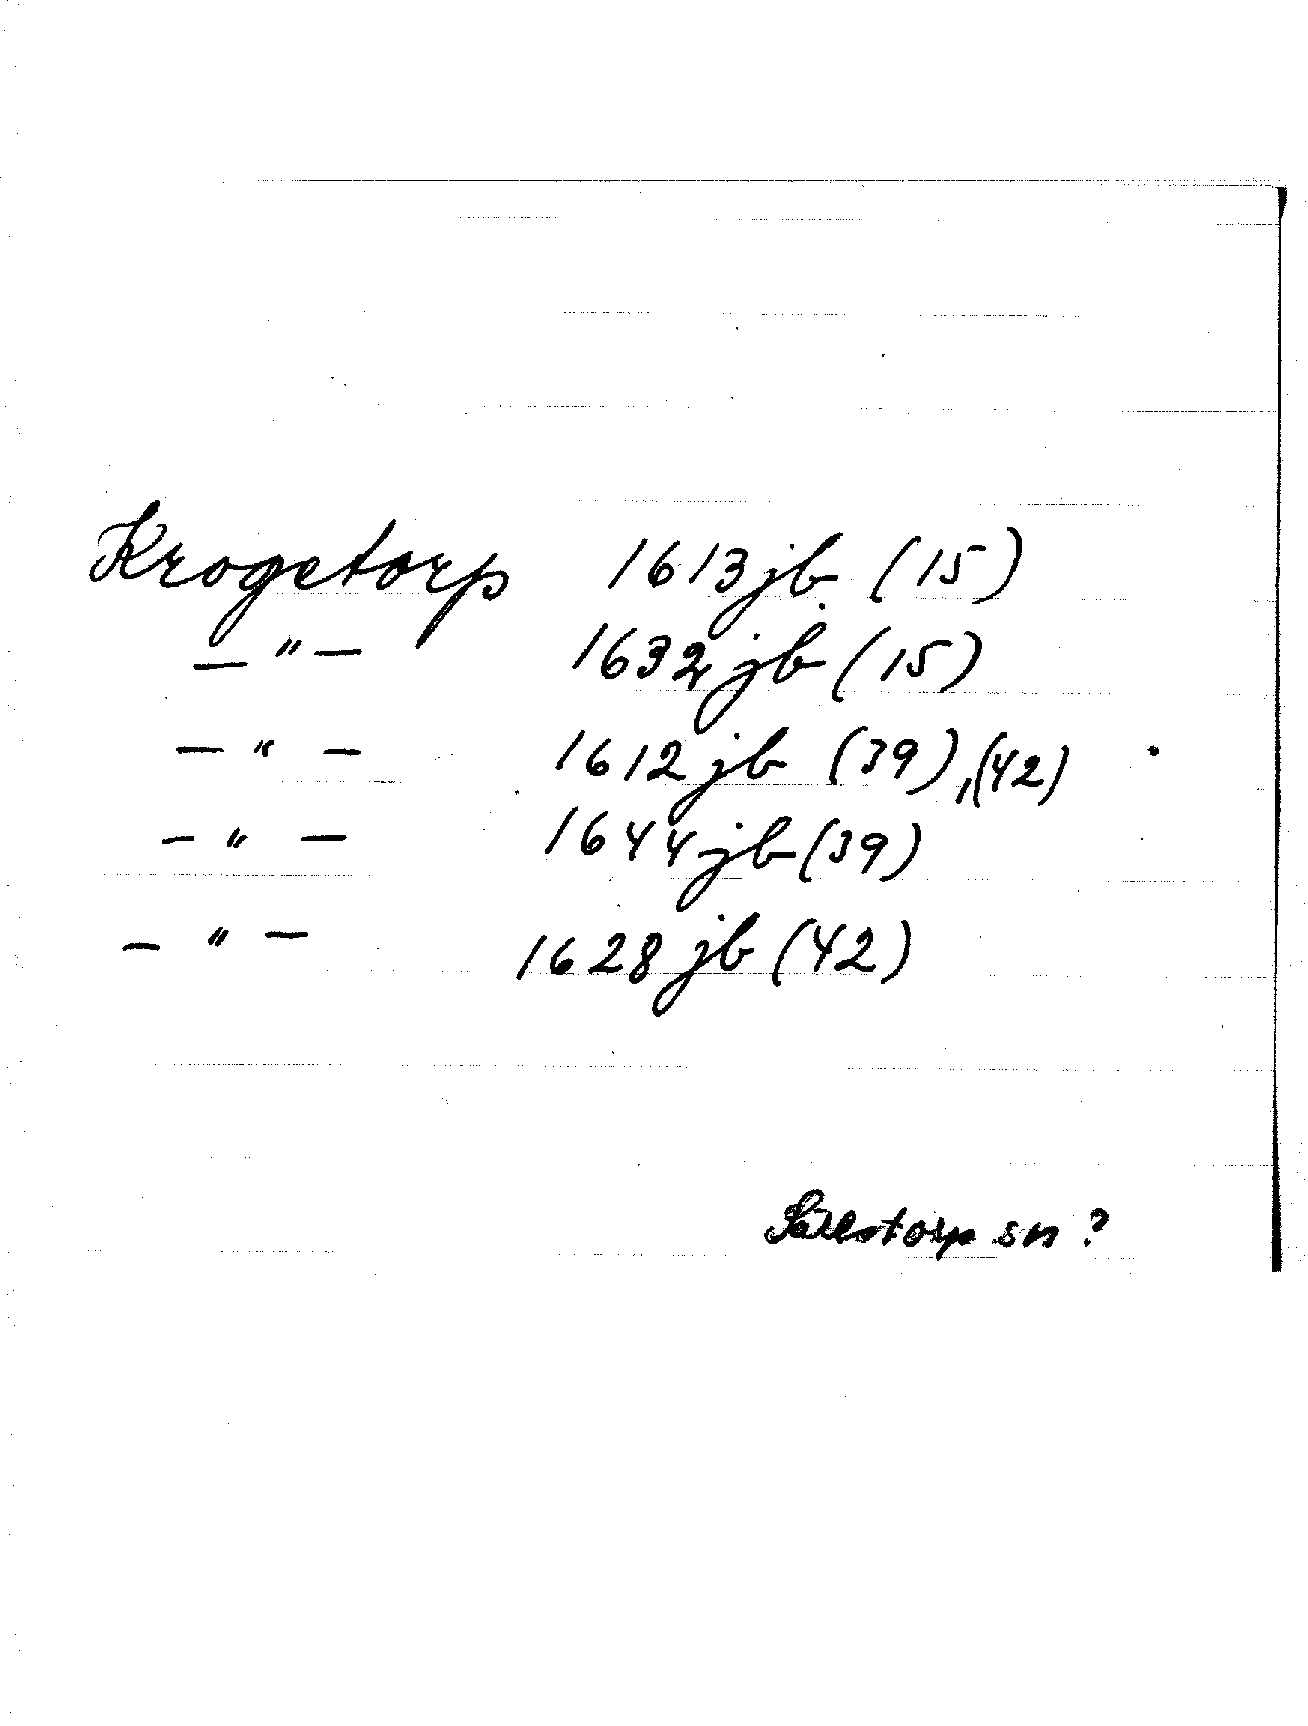 Krogetorp 1613 jb (15)
—"— 1632 jb (15)
—"— 1612 jb (39), (42)
—"— 1644 jb (39)
—"— 1628 jb (42)
Sällstorp sn?